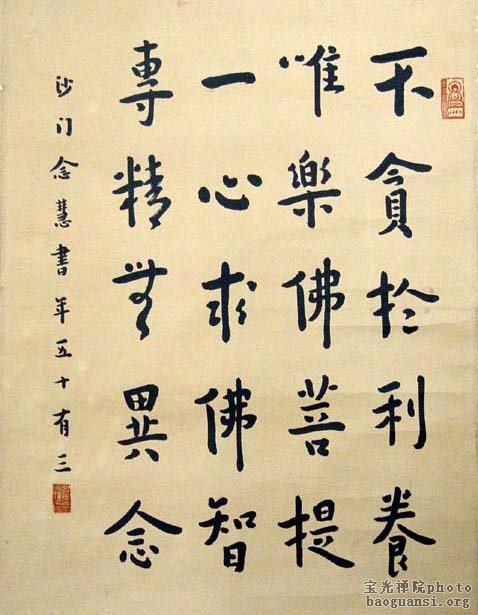 不貪於利養
唯樂佛菩提
一心求佛智
專精無異念
沙门念慧書年五十有三
宝光禅院photo
baoguansi.org